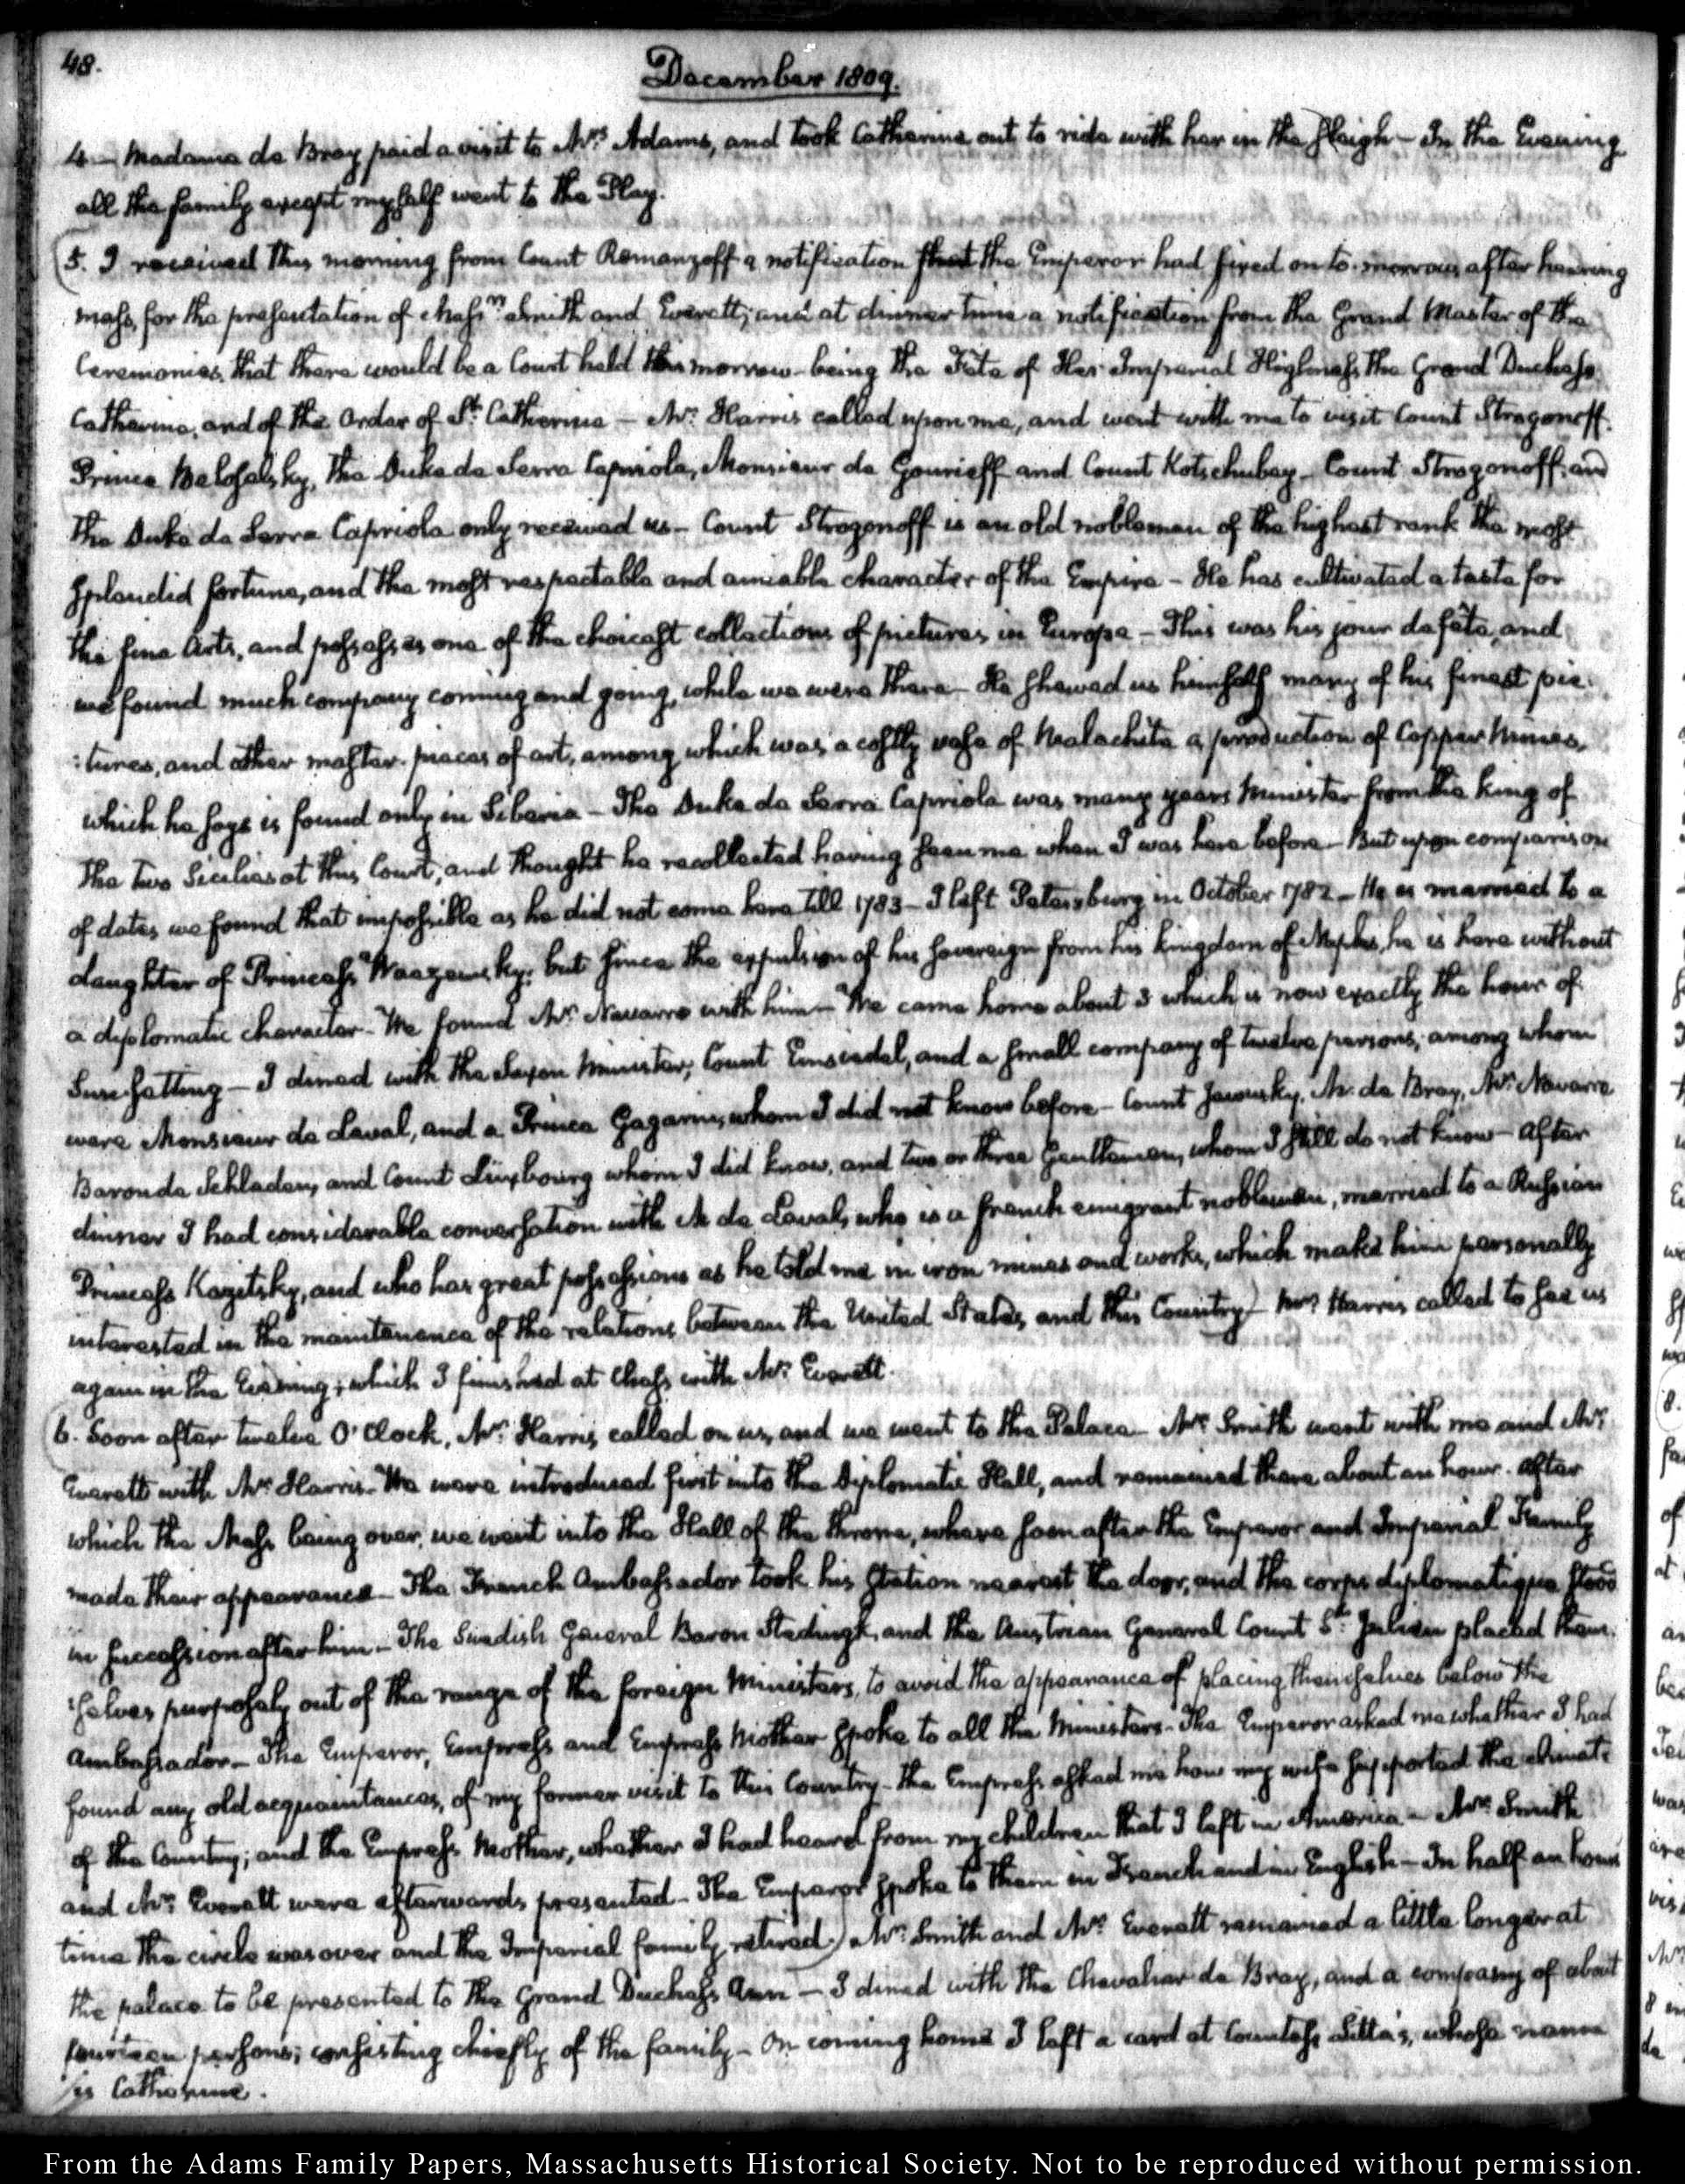 48.
December 1809.
4 — Madame de Bray paid a visit to Mrs Adams, and took Catharine out to ride with her in the Sleigh — In the Evening
all the family except myself went to the Play.
5. I received this morning from Count Romanzoff a notification that the Emperor had fixed on to-morrow after hearing
mass, for the presentation of Messrs Smith and Everett; and at dinner time a notification from the Grand Master of the
Ceremonies, that there would be a Court held tomorrow — being the Fete of Her Imperial Highness, the Grand Duchess
Catherine, and of the Order of St. Catherine — Mr. Harris called upon me, and went with me to visit Count Strogonoff.
Prince Beloselsky, the Duke de Serra Capriola, Monsieur de Gourieff and Count Kotschubey — Count Strogonoff, and
the Duke de Serra Capriola only received us — Count Strogonoff is an old nobleman of the highest rank the most
splendid fortune, and the most respectable and amiable character of the Empire — He has cultivated a taste for
the fine Arts, and possesses one of the choicest collections of pictures in Europe — This was his jour de fête, and
we found much company coming and going, while we were there — He shewed us himself many of his finest pic-
:tures, and other master-pieces of art, among which was a costly vase of Malachite a production of Copper Mines,
which he says is found only in Siberia — The Duke de Serra Capriola was many years Minister from the King of
the two Sicilies at this Court, and thought he recollected having seen me when I was here before — But upon comparison
of dates we found that impossible as he did not come here till 1783 — I left Petersburg in October 1782 — He is married to a
daughter of Princess Waazemsky; but since the expulsion of his sovereign from his kingdom of Naples, he is here without
a diplomatic character — We found Mr. Navarro with him — We came home about 3 which is now exactly the hour of
Sun-setting — I dined with the Saxon Minister, Count Einsiedel, and a small company of twelve persons, among whom
were Monsieur de Laval, and a Prince Gagarin, whom I did not know before — Count Jawnsky, M. de Bray, Mr. Navarro
Baron de Schladen, and Count Luxbourg whom I did know, and two or three Gentlemen, whom I still do not know — After
dinner I had considerable conversation with M de Laval, who is a french emigrant nobleman, married to a Russian
Princess Kozitsky, and who has great possessions as he told me in iron mines and works, which make him personally
interested in the maintenance of the relations between the United States, and this Country) — Mr. Harris called to see us
again in the Evening; which I finished at Chess with Mr. Everett.
6. Soon after twelve O'Clock, Mr. Harris called on us, and we went to the Palace — Mr. Smith went with me and Mr.
Everett with Mr. Harris — We were introduced first into the Diplomatic Hall, and remained there about an hour. After
which the Mass being over, we went into the Hall of the throne, where soon after the Emperor and Imperial Family
made their appearance — The French Ambassador took his station nearest the door, and the corps diplomatique stood
in succession after him — The Swedish General Baron Stedingk, and the Austrian General Count St. Julien placed them-
:selves purposely out of the range of the foreign Ministers, to avoid the appearance of placing themselves below the
Ambassador — The Emperor, Empress and Empress Mother spoke to all the Ministers — The Emperor asked me whether I had
found any old acquaintances, of my former visit to this Country — the Empress asked me how my wife supported the climate
of the Country; and the Empress Mother, whether I had heard from my children that I left in America — Mr. Smith
and Mr. Everett were afterwards presented — The Emperor spoke to them in French and in English — In half an hour
time the circle was over and the Imperial family retired.) Mr. Smith and Mr. Everett remained a little longer at
the palace to be presented to the Grand Duchess Ann — I dined with the Chevalier de Bray, and a company of about
fourteen persons; consisting chiefly of the family — On coming home I left a card at Countess Litta's, whose name
is Catherine.
From the Adams Family Papers, Massachusetts Historical Society. Not to be reproduced without permission.